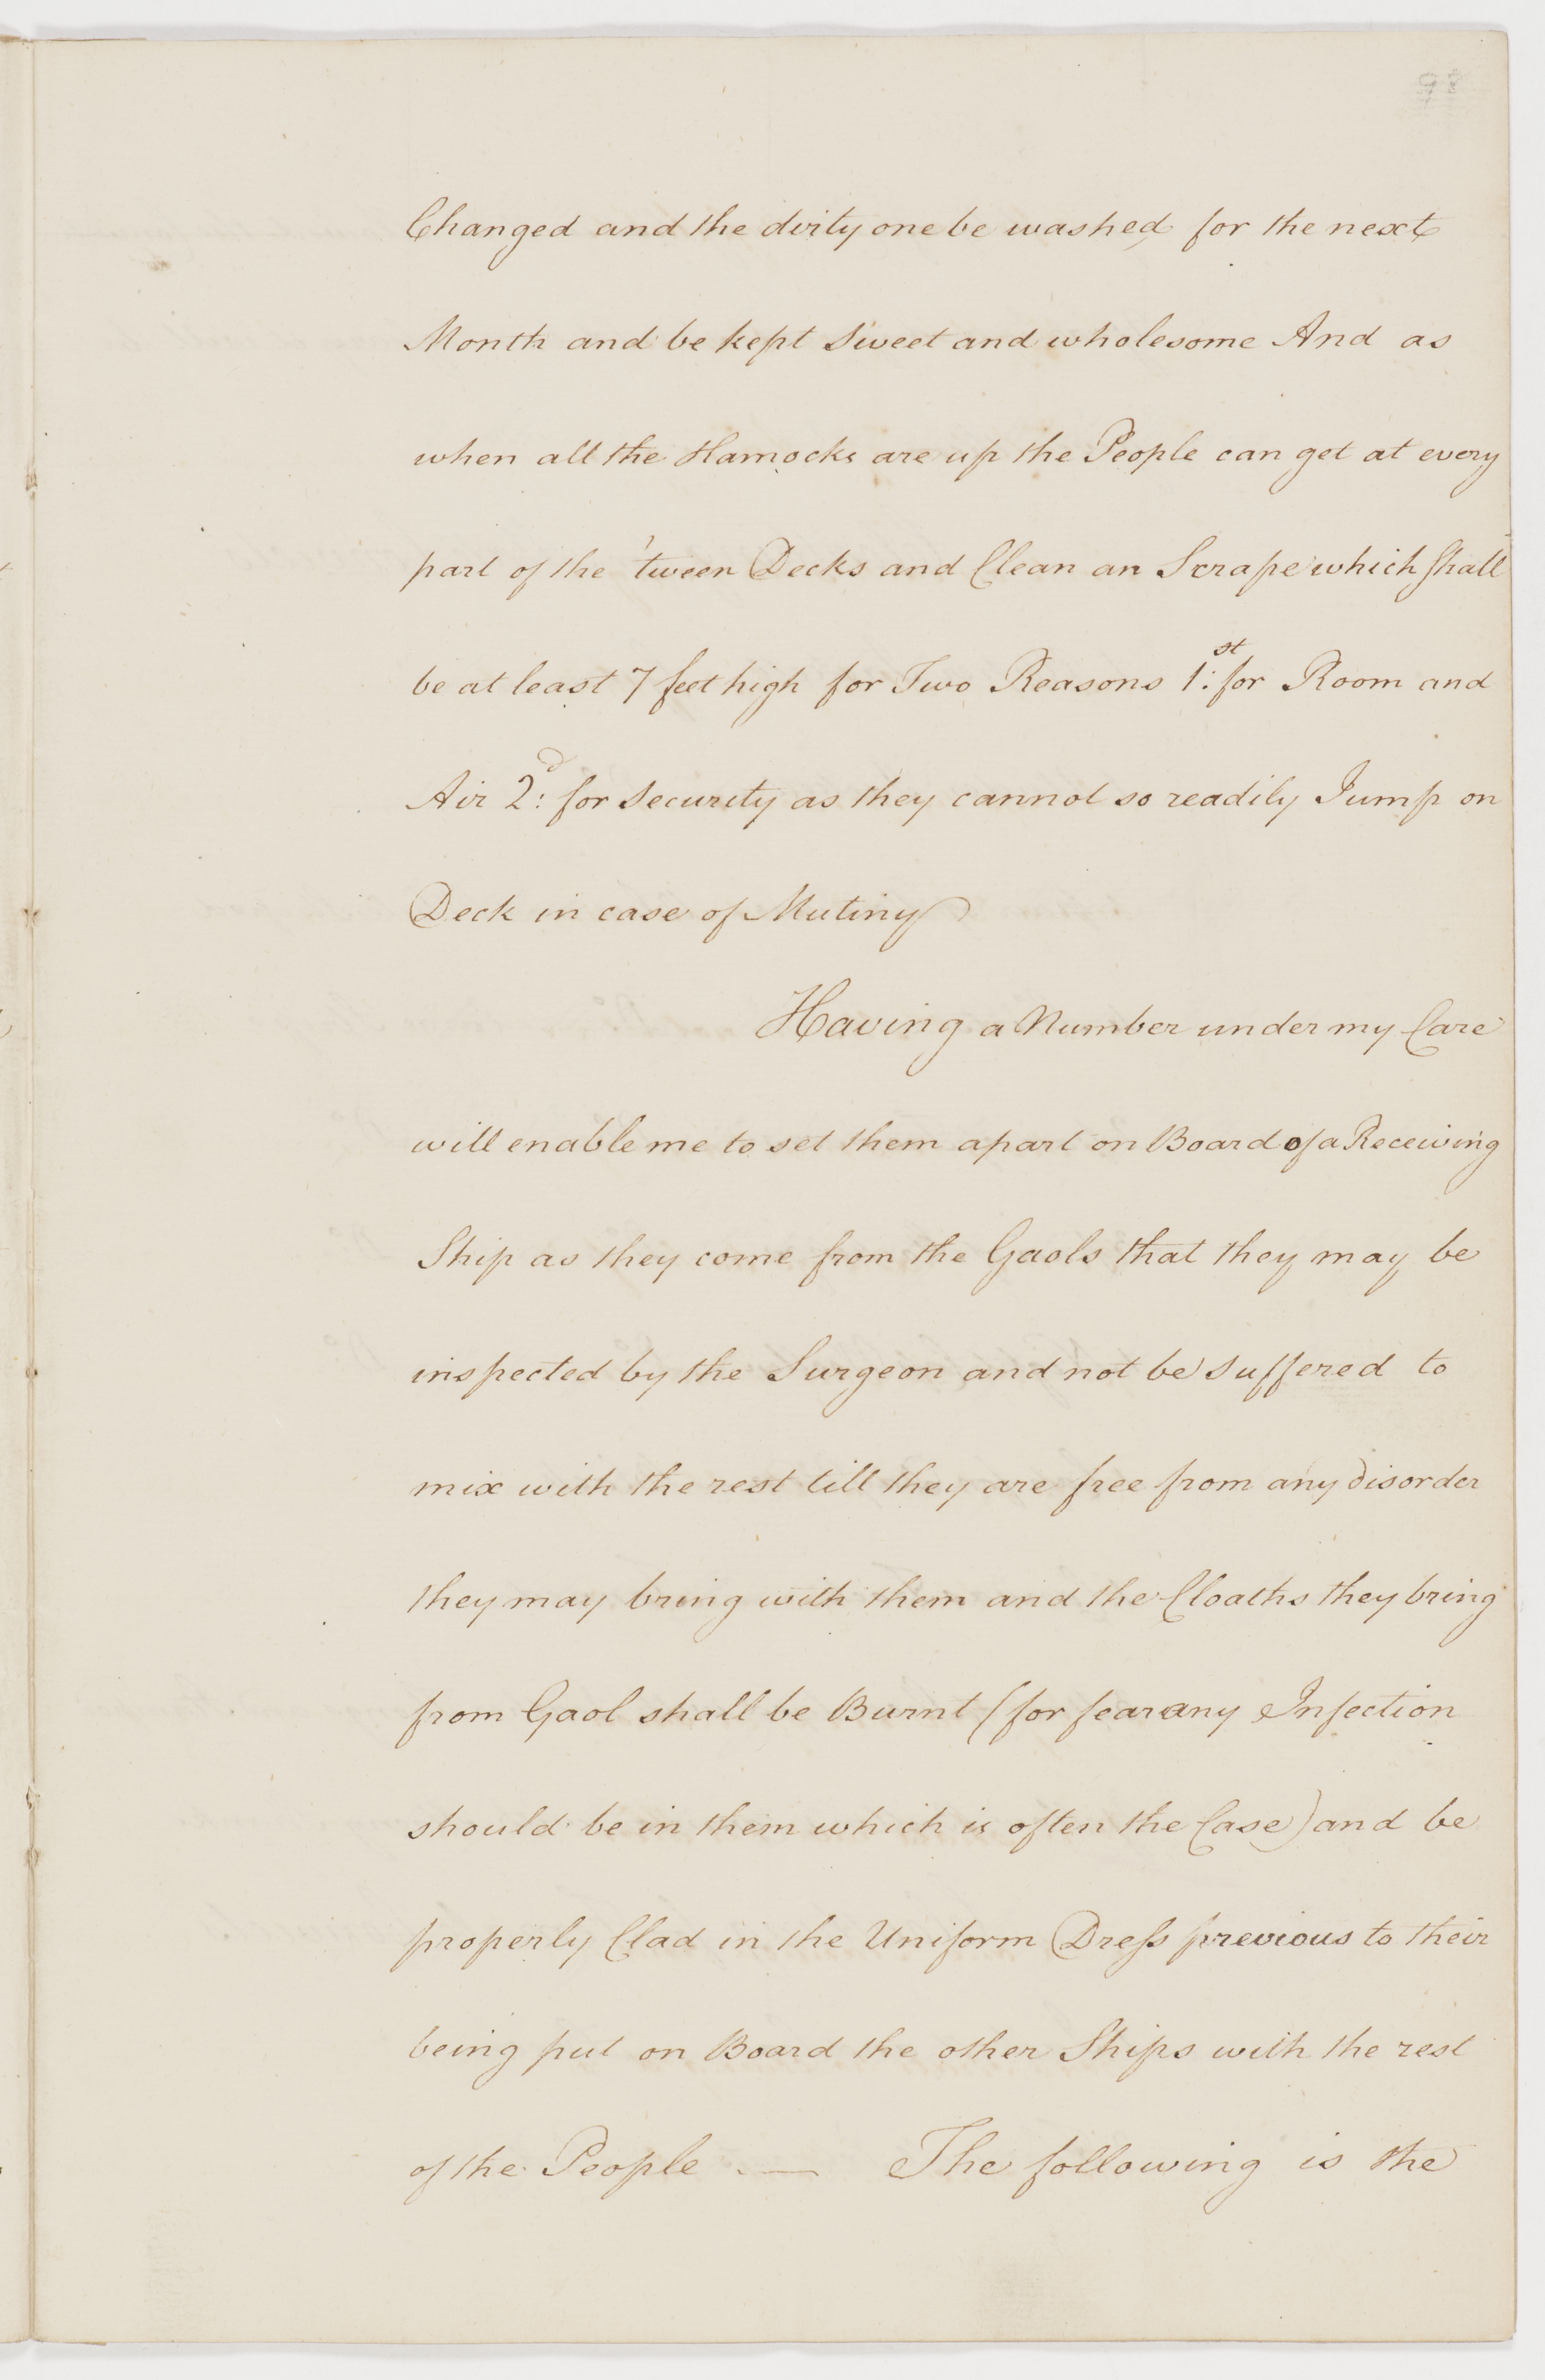 Changed and the dirty one be washed for the next
Month and be kept sweet and wholesome And as
when all the Hamocks are up the People can get at every
part of the 'tween Decks and Clean an Scrape which shall
be at least 7 feet high for Two Reasons 1.st for Room and
Air 2.d for Security as they cannot so readily Jump on
Deck in case of Mutiny
Having a Number under my Care
will enable me to set them apart on Board of a Receiving
Ship as they come from the Gaols that they may be
inspected by the Surgeon and not be suffered to
mix with the rest till they are free from any disorder
they may bring with them and the Cloaths they bring
from Gaol shall be Burnt (for fear any Infection
should be in them which is often the Case) and be
properly Clad in the Uniform Dress previous to their
being put on Board the other Ships with the rest
of the People — The following is the